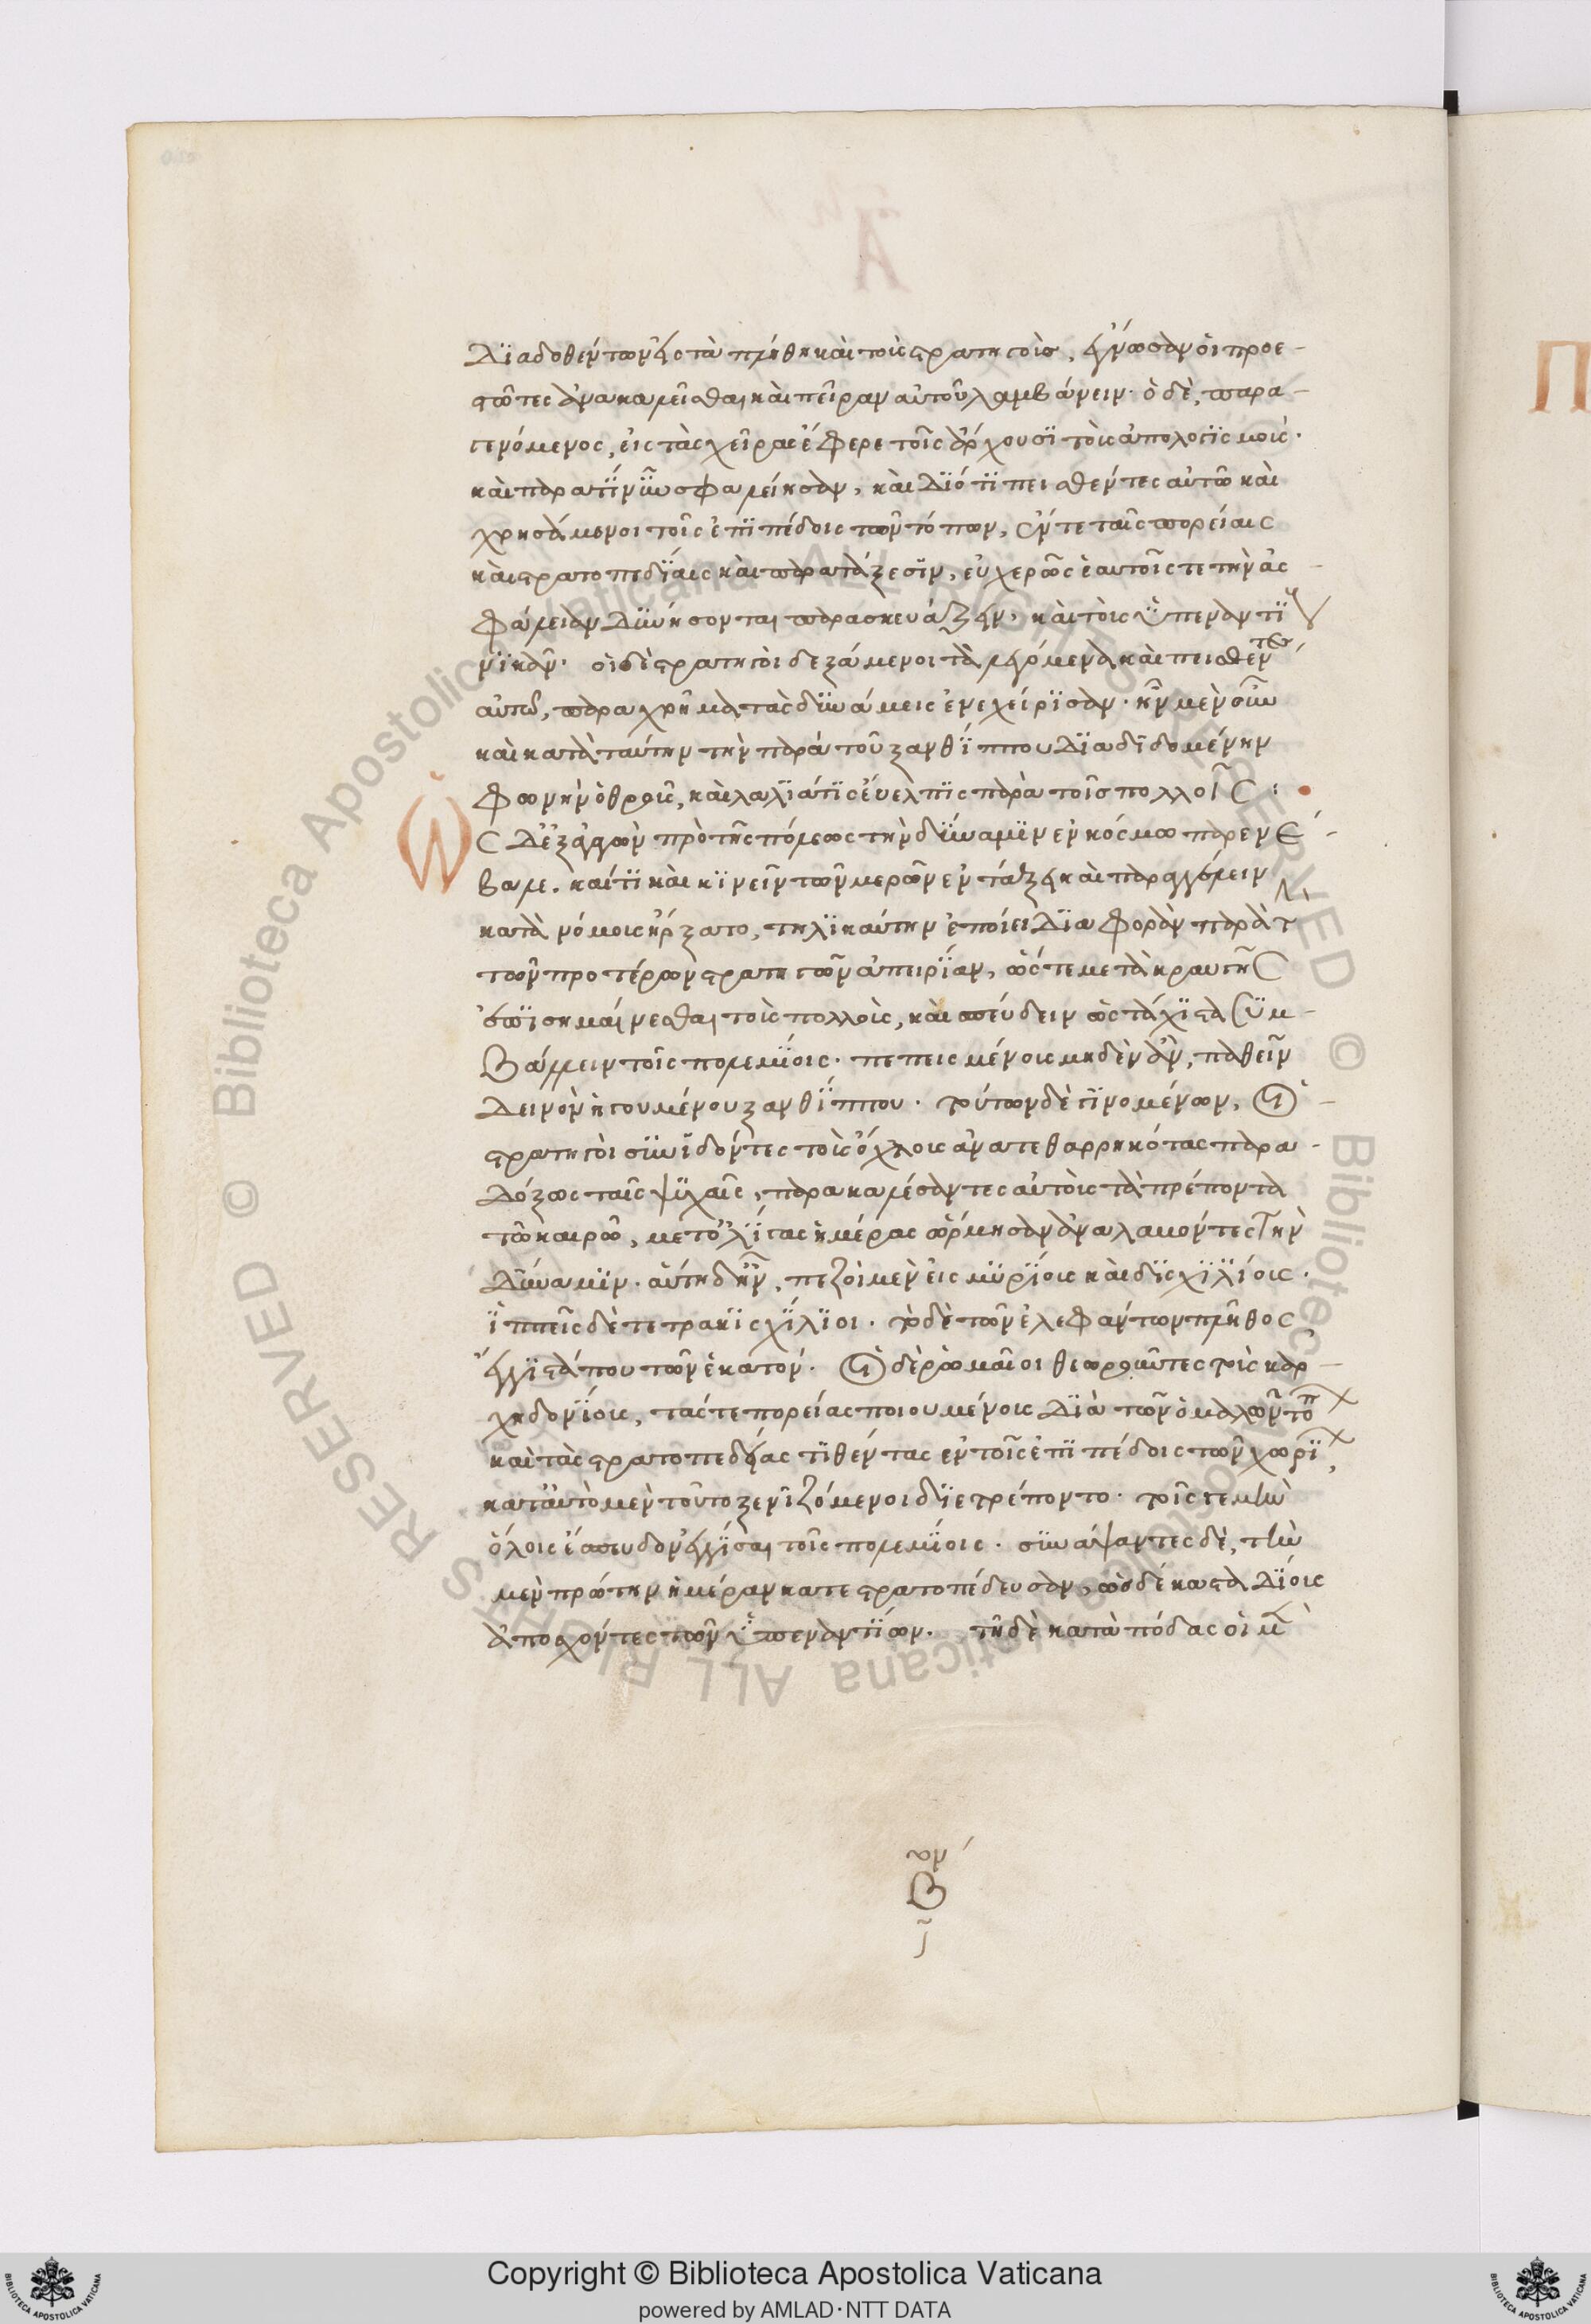 διαδοθέντων εἰς τὰ πλήθη καὶ τοὺς στρατηγοὺς, ἔγνωσαν οἱ προε-
στῶτες ἀνακαλεῖσθαι καὶ πεῖραν αὐτοῦ λαμβάνειν· ὁ δὲ, παρα-
γενόμενος, εἰς τὰς χεῖρας ἔφερε τοῖς ἄρχουσϊ τοὺς ἀπολογϊσμοὺς·
καὶ παρατΐ νῦν σφαλείησαν, καὶ διότϊ πεισθέντες αὐτῶ καὶ
χρησάμενοι τοῖς ἐπϊπέδοις τῶν τόπων, ἔν τε ταῖς πορείαις
καὶ στρατοπεδΐαις καὶ παρατάξεσϊν, εὐχερῶς ἑαυτοῖς τε τὴν ἀσ-
φάλειαν δϋνήσονται παρασκευάζειν, καὶ τοὺς ὑπεναντϊ
νϊκᾶν· οἱ δὲ στρατηγοὶ δεξάμενοι τὰ λεγόμενα καὶ πεισθέντες
αὐτῶ, παραχρῆμα τὰς δϋνάμεις ἐνεχείρϊσαν· ἦν μὲν οὖν
καὶ κατὰ ταύτην τὴν παρὰ τοῦ ξανθΐππου δϊαδϊδομένην
φωνὴν ὁ θροῦς, καὶ λαλϊάτϊς εὔελπϊς παρὰ τοῖς πολλοῖς :
Ὡς δἐξαγαγὼν πρὸ τῆς πόλεως τὴν δΰναμϊν ἐν κόσμω παρενέ-
βαλε. καίτϊ καὶ κϊνεῖν τῶν μερῶν ἐν τάξει καὶ παραγγέλλειν
κατὰ νόμους ἤρξατο, τηλϊκαύτην ἐποίει δϊαφορὰν παρὰ τ
τῶν προτέρων στρατηγῶν ἀπειρΐαν, ὥστε μετὰ κραυγῆς
ἐπϊσημαίνεσθαι τοὺς πολλοὺς, καὶ σπεύδειν ὡς τάχϊστα σϋμ-
βάλλειν τοῖς πολεμΐοις· πεπεισμένους μηδὲν ἂν, παθεῖν
δεινὸν ἡγουμένου ξανθΐππου· τούτων δὲ γϊνομένων, οἱ
στρατηγοὶ σϋνϊδόντες τοὺς ὄχλους ἀνατεθαρρηκότας παρα-
δόξως ταῖς ψϋχαῖς, παρακαλέσαντες αὐτοὺς τὰ πρέποντα
τῶ καιρῶ, μετ᾽ὀλΐγας ἡμέρας ὥρμησαν ἀναλαβόντες τὴν
δΰναμϊν· αὕτη δ᾽ἦν, πεζοὶ μὲν εἰς μϋρΐους καὶ δϊσχϊλΐους·
ἱππεῖς δὲ τετρακϊσχΐλϊοι· τὸ δὲ τῶν ἐλεφάντων πλῆθος
ἔγγϊστά που τῶν ἑκατόν· Οἱ δὲ ῥωμαῖοι θεωροῦντες τοὺς καρ-
χηδονΐους, τάς τε πορείας ποιουμένους δϊὰ τῶν ὁμαλῶν τόπ
καὶ τὰς στρατοπεδείας τϊθέντας ἐν τοῖς ἐπϊπέδοις τῶν χωρϊ
κατ᾽αὐτὸ μὲν τοῦτο ξενϊζόμενοι δϊετρέποντο· τοῖς γε μὴν
ὅλοις ἔσπευδον ἐγγΐσαι τοῖς πολεμΐοις· σϋνάψαντες δὲ, τὴν
μὲν πρώτην ἡμέραν κατεστρατοπέδευσαν, ὡς δέκα σταδΐους
ἀποσχόντες τῶν ὑπεναντΐων· τῆ δὲ κατὰ πόδας οἱ μ